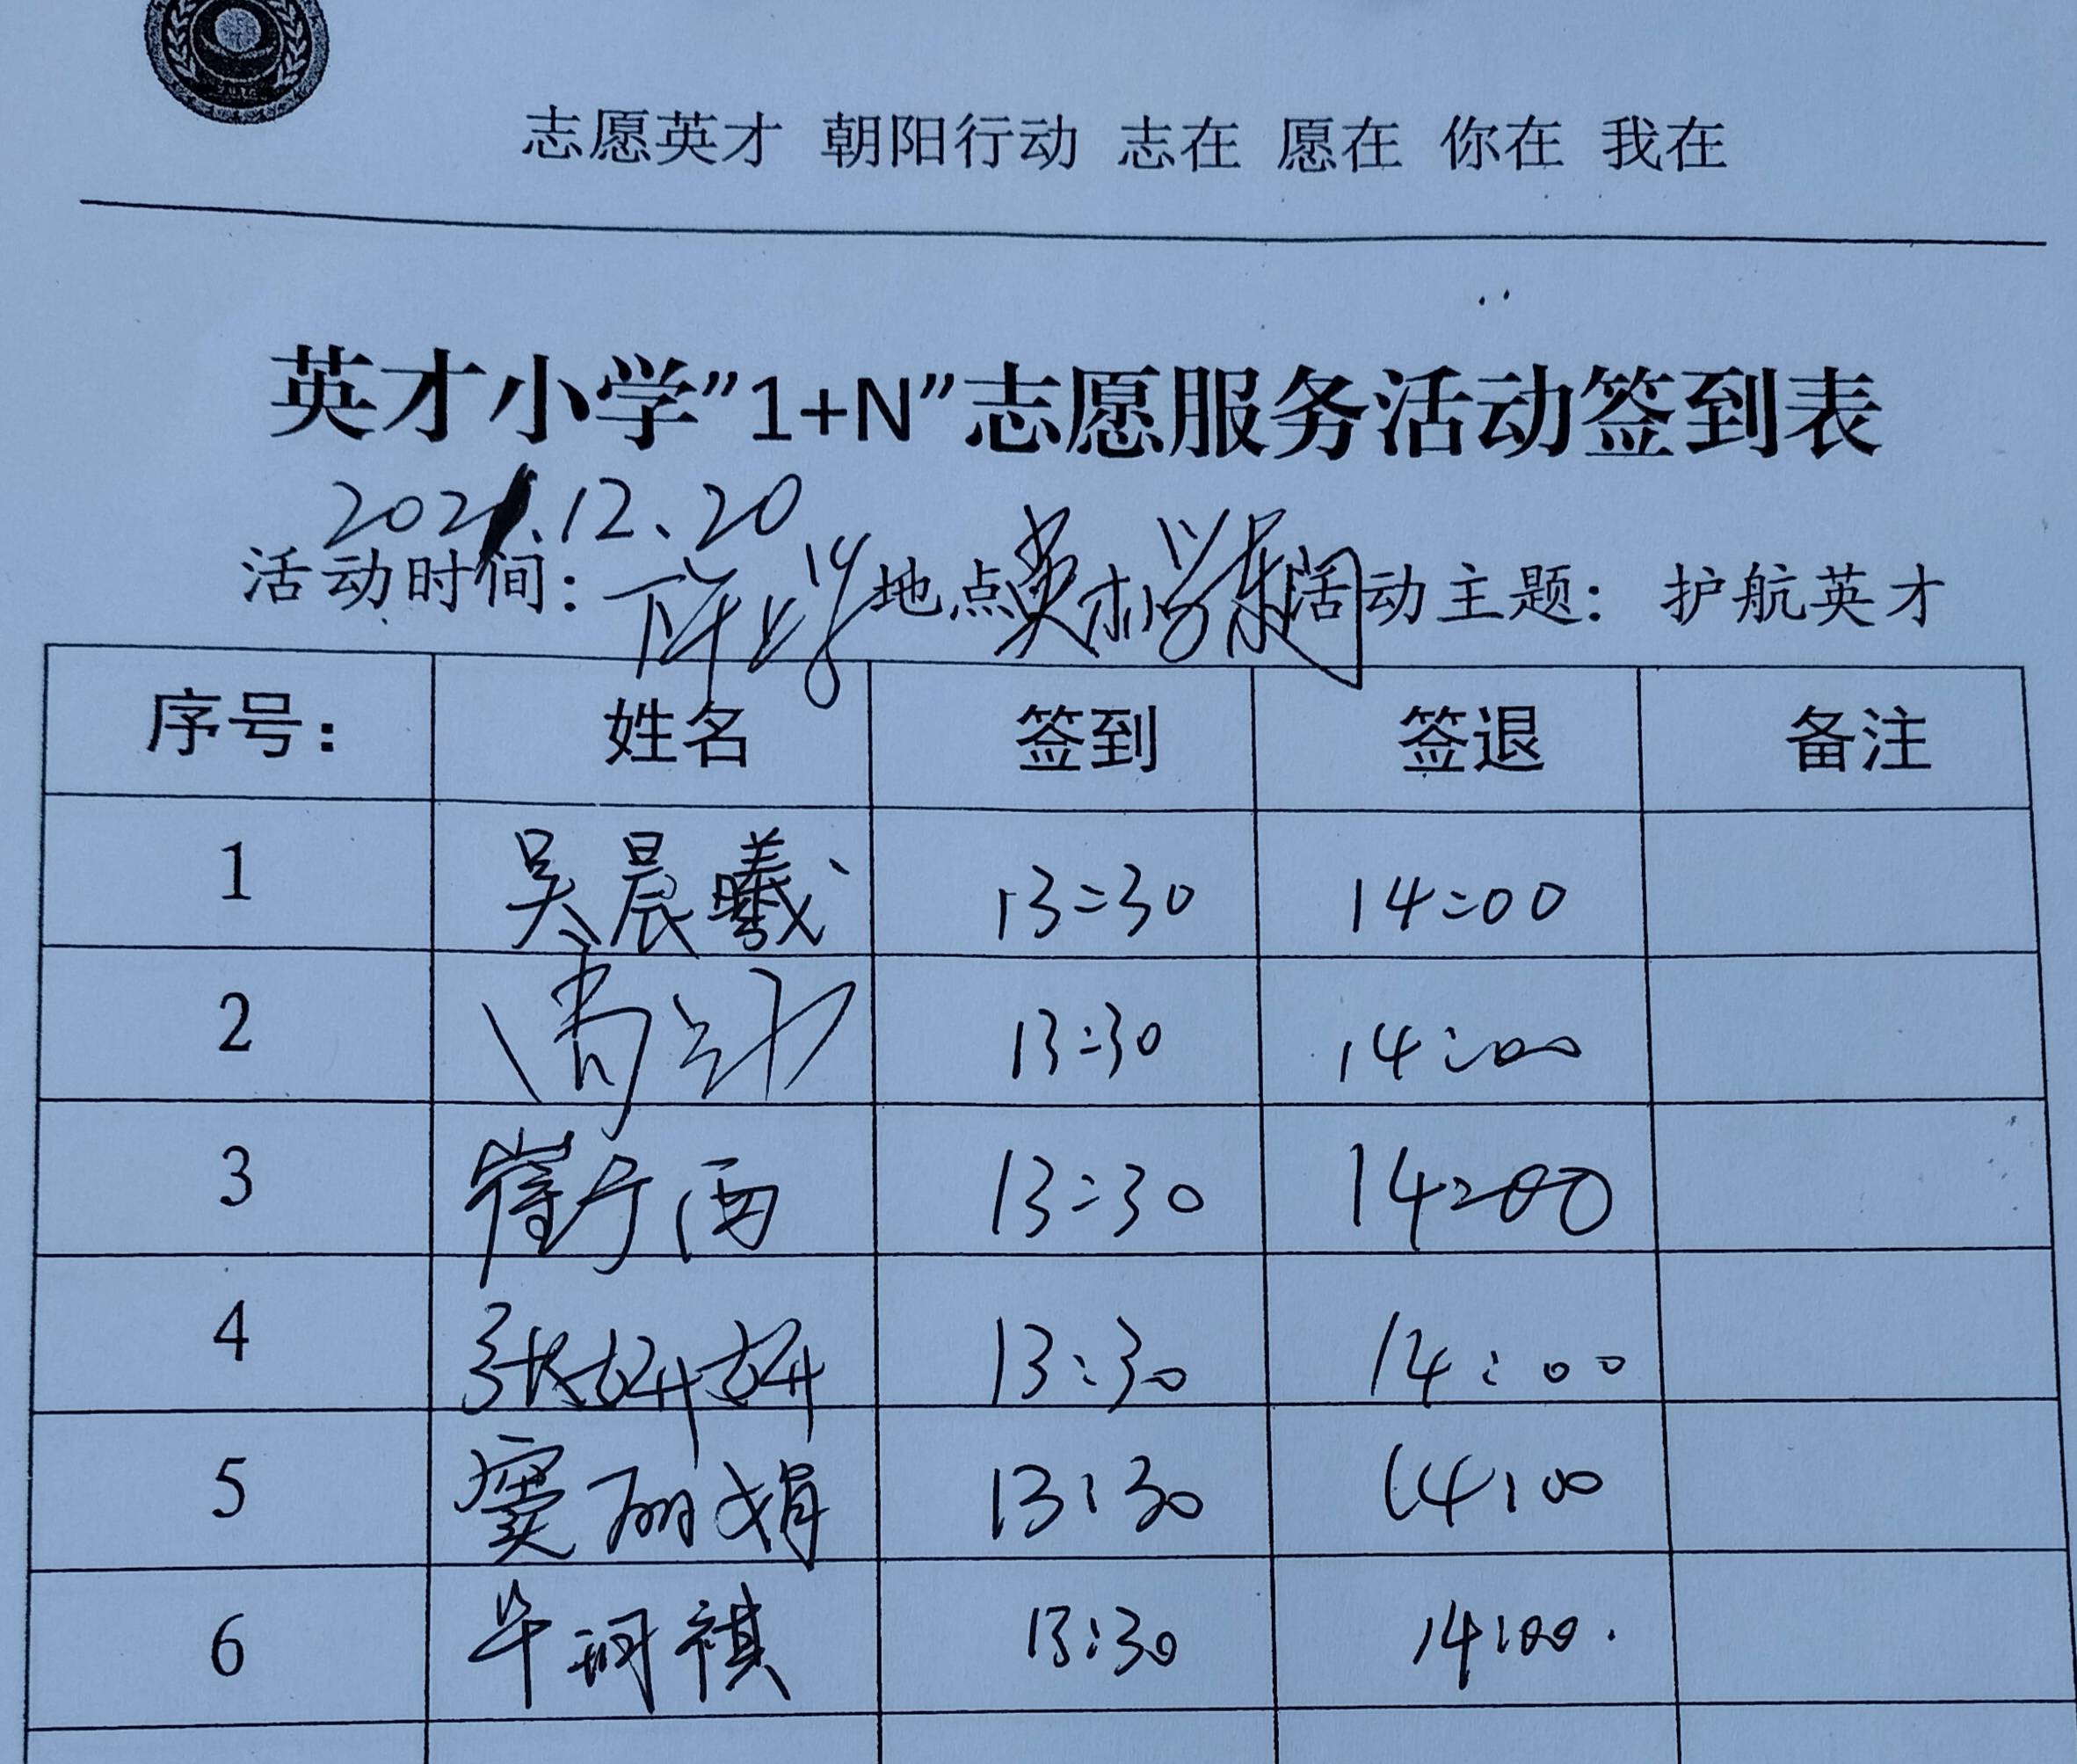 志愿英才 朝阳行动 志在 愿在 你在 我在
英才小学"1+N"志愿服务活动签到表
2021.12.20
活动时间: 下午上学 地点 英才小学东门 活动主题: 护航英才
序号: 姓名 签到 签退 备注
1 吴晨曦 13:30 14:00
2 13:30 14:00
3 13:30 14:00
4 张妍妍 13:30 14:00
5 窦丽娟 13:30 14:00
6 毕珂祺 13:30 14:00